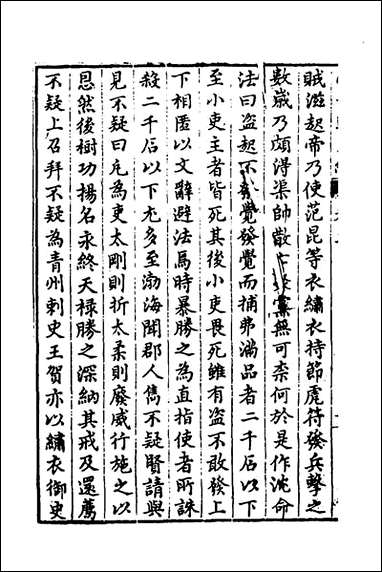 賊滋起帝乃使范昆等衣繡衣持節虎符發兵擊之
數歲乃頗得渠帥散亡聚黨無可柰何於是作沈命
法曰盗起不發覺發覺而捕弗滿品者二千石以下
至小吏主者皆死其後小吏畏死雖有盗不敢發上
下相匿以文辭避法焉時暴勝之為直指使者所誅
殺二千石以下尤多至渤海聞郡人雋不疑賢請與
見不疑曰凢為吏太剛則折太柔則廢威行施之以
恩然後樹功揚名永終天禄勝之深納其戒及還薦
不疑上召拜不疑為青州刺史王賀亦以繡衣御史